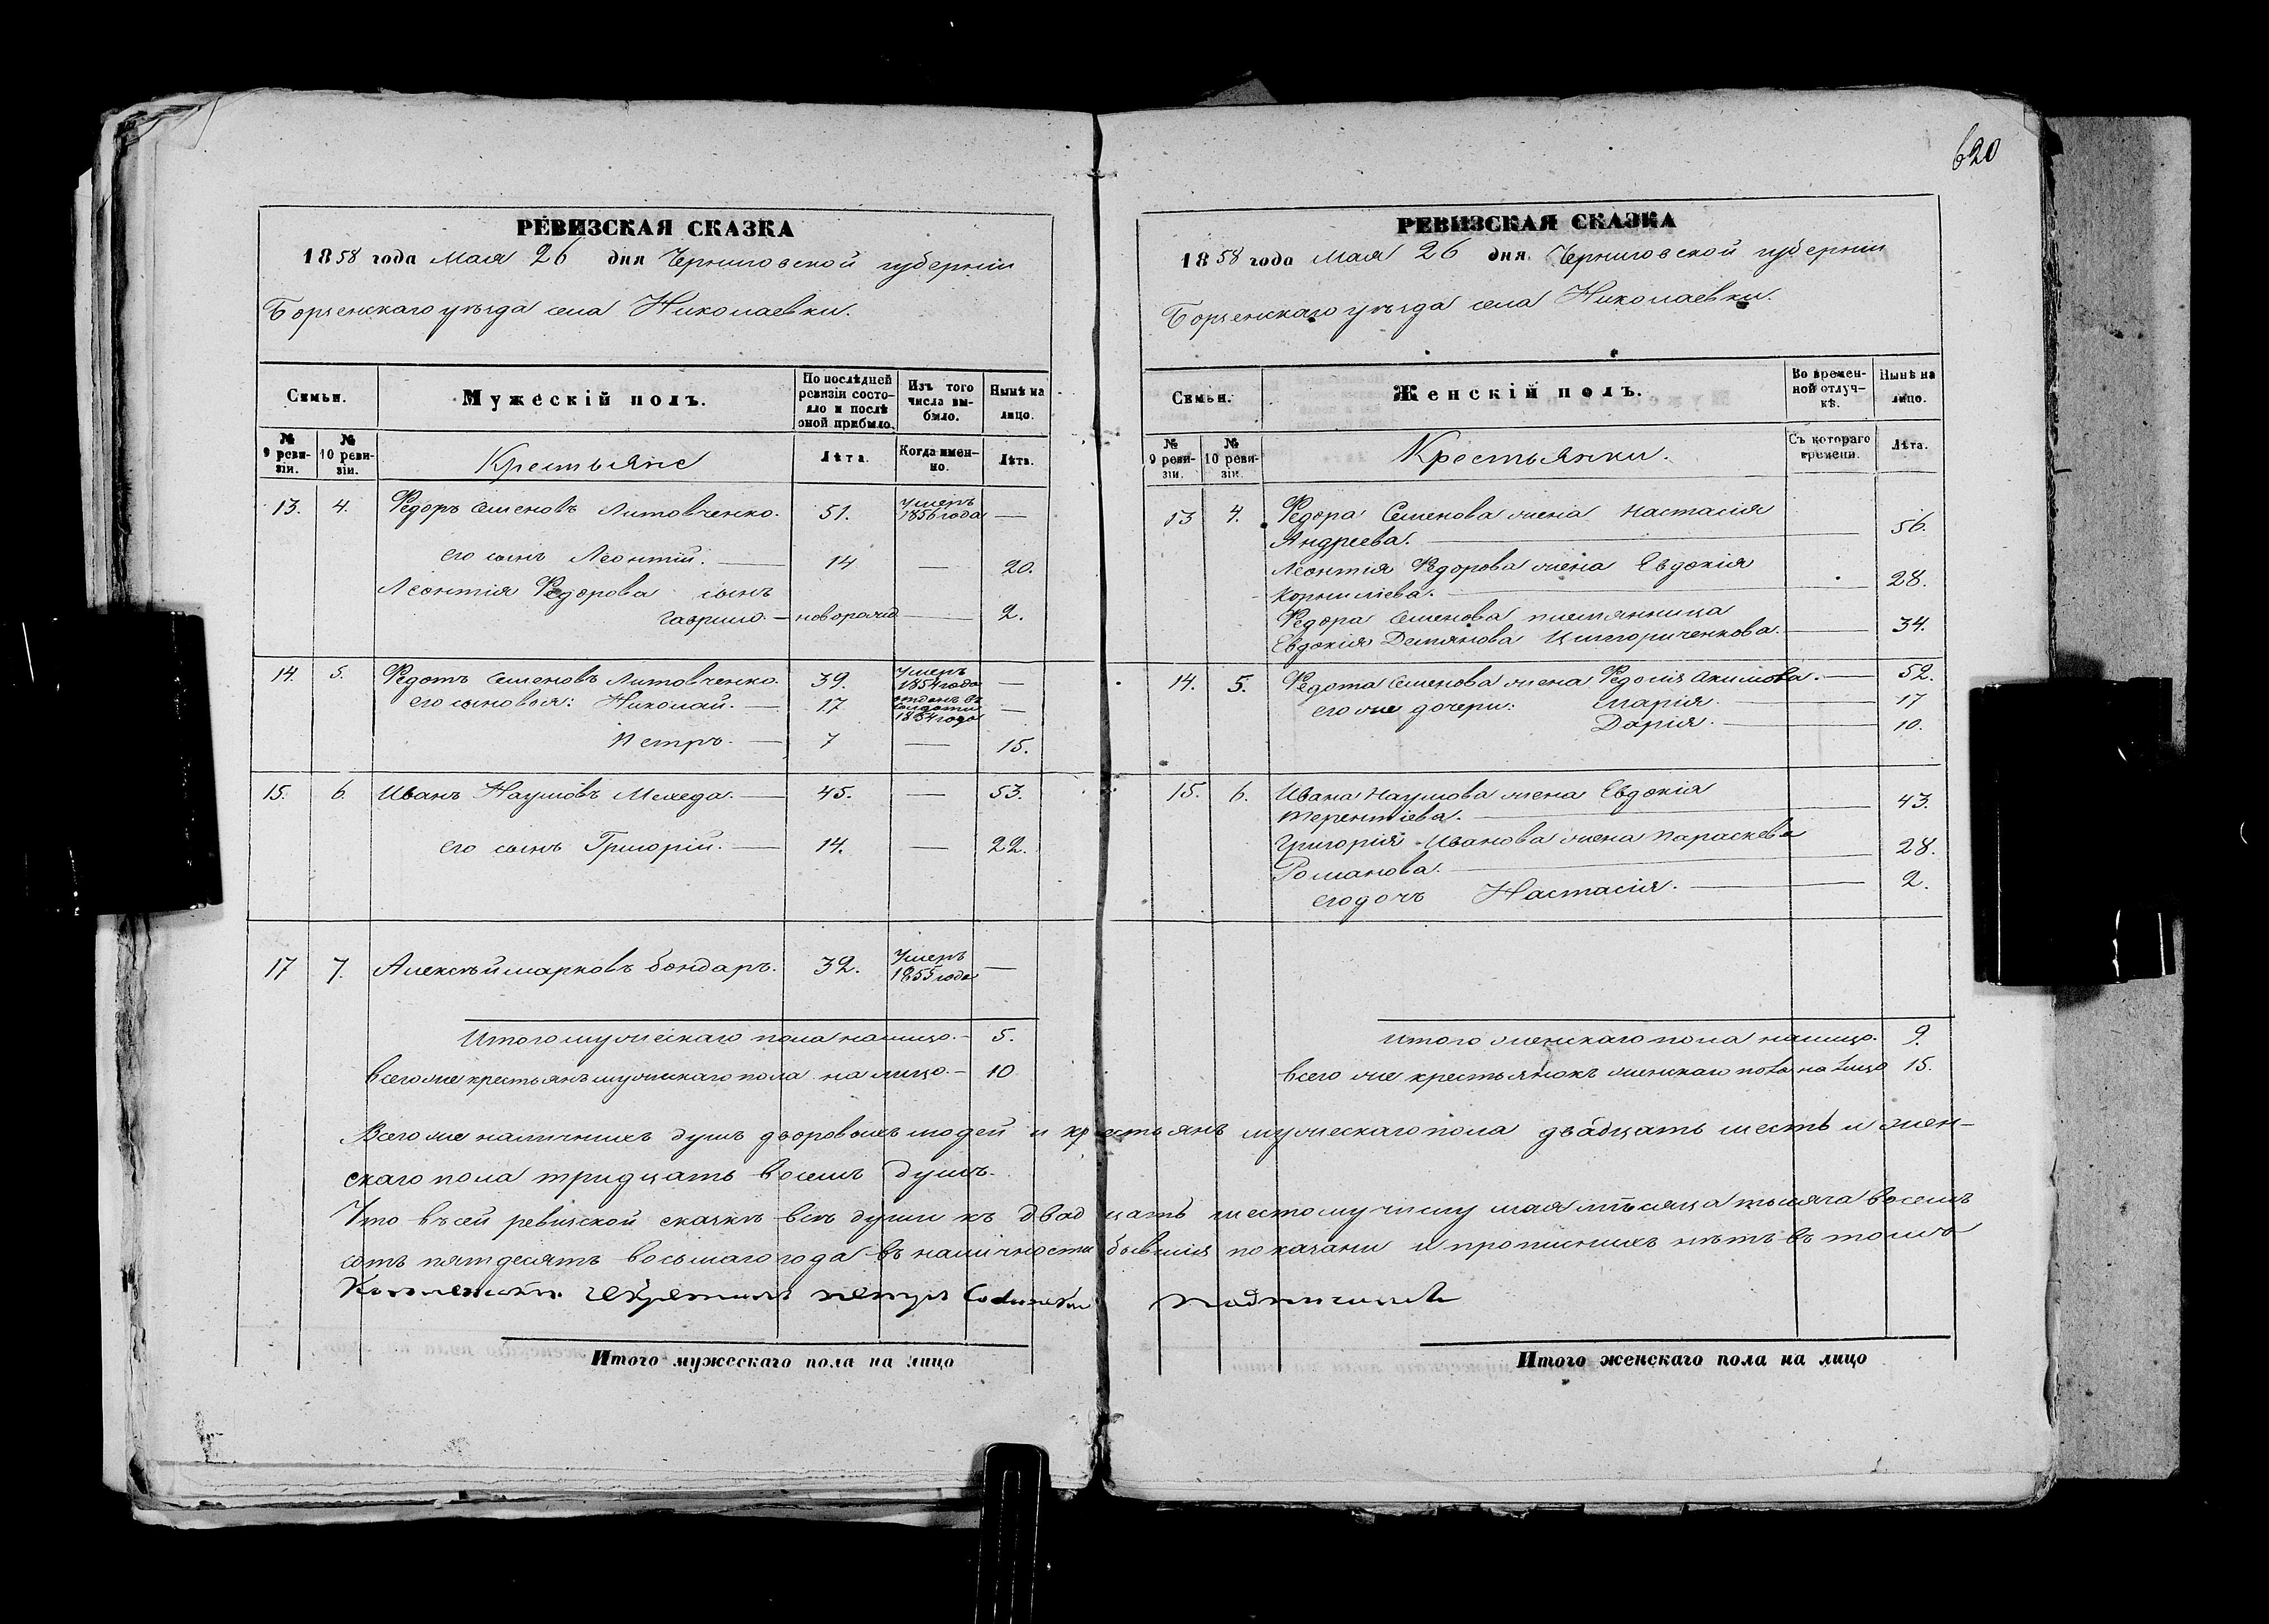 620
РЕВИЗСКАЯ СКАЗКА
1858 года Мая 26 дня Черниговской губерніи
Борзенскаго уѣзда села Николаевки.
Семьи.
Мужескій полъ.
По послѣдней ревизіи состояло и послѣ оной прибыло.
Изъ того числа выбыло.
Нынѣ на лицо.
№ 9 ревизіи.
№ 10 ревизіи.
Крестьяне
Лѣта.
Когда именно.
Лѣта.
13. 4. Федоръ Семеновъ Литовченко. 51. Умеръ 1856 года —
его сынъ Леонтій. — 14 — 20.
Леонтія Федорова сынъ
Гаврило. — новорожд — 2.
14. 5. Федотъ Семеновъ Литовченко. 39. Умеръ 1854 года —
его сыновья: Николай. — 17. отданъ въ солдаты 1854 года —
Петръ. — 7 — 15.
15. 6. Иванъ Наумовъ Мехеда. — 45. — 53.
его сынъ Григорій. — 14. — 22.
17 7. Алексѣй Марковъ Бондарь. 32. Умеръ 1855 года —
Итого мужескаго пола налицо. — 5.
Всего же крестьянъ мужскаго пола на лицо. — 10
РЕВИЗСКАЯ СКАЗКА
1858 года Мая 26 дня Черниговской губерніи
Борзенскаго уѣзда села Николаевки.
Семьи.
Женскій полъ.
Во временной отлучкѣ.
Нынѣ на лицо.
№ 9 ревизіи.
№ 10 ревизіи.
Крестьянки.
Съ котораго времени.
Лѣта.
13 4. Федора Семенова жена Настасія
Андреева. — 56.
Леонтія Федорова жена Евдокія
Корниліева. — 28.
Федора Семенова племянница
Евдокія Демянова — 34.
14. 5. Федота Семенова жена Федосія Акимова. — 52.
его же дочери: Марія. — 17
Дарія. — 10.
15. 6. Ивана Наумова жена Евдокія
Терентіева. — 43.
Григорія Иванова жена Параскева
Романова. — 28.
его дочь Настасія. — 2.
Итого женскаго пола налицо. 9.
Всего же крестьянокъ женскаго пола на лицо 15.
Всего же наличныхъ душъ дворовыхъ людей и крестьянъ мужескаго пола двадцать шесть и жен-
скаго пола тридцать восемь душъ.
Что въ сей ревизской сказкѣ всѣ души къ двадцать шестому числу мая мѣсяца тысяча восемь
сотъ пятдесятъ восьмаго года въ наличности бывшія показани и прописныхъ нѣтъ въ томъ
Итого мужескаго пола на лицо
Итого женскаго пола на лицо